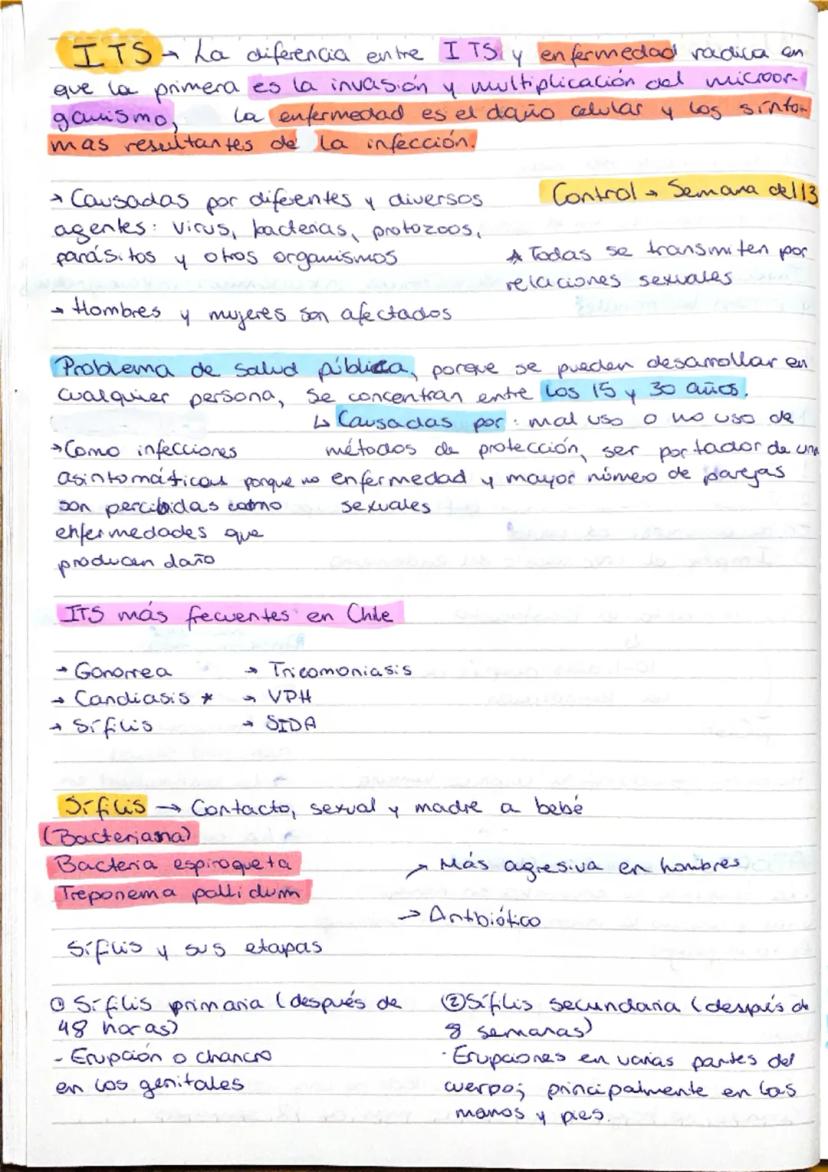 ITS → La diferencia entre ITS y enfermedad radica en
que la primera es la invasión y multiplicación del microor-
ganismo, la enfermedad es el daño celular y los sínto-
mas resultantes de la infección.
→ Causadas por diferentes y diversos
agentes: virus, bacterias, protozoos,
parásitos y otros organismos
→ Hombres y mujeres son afectados
Control → Semana del 13
* Todas se transmiten por
relaciones sexuales
Problema de salud pública, porque se pueden desarrollar en
cualquier persona, se concentran entre los 15 y 30 años.
↳ Causadas por: mal uso o no uso de
métodos de protección, ser portador de una
enfermedad y mayor número de parejas
sexuales
→ Como infecciones
asintomáticas porque no
son percibidas como
enfermedades que
producen daño
ITS más frecuentes en Chile
→ Gonorrea → Tricomoniasis
→ Candiasis * → VPH
→ Sífilis → SIDA
Sífilis → Contacto, sexual y madre a bebé
(Bacteriana)
Bacteria espiroqueta
Treponema pallidum
→ Más agresiva en hombres
→ Antibiótico
Sífilis y sus etapas
① Sífilis primaria (después de
48 horas)
- Erupción o chancro
en los genitales
② Sífilis secundaria (después de
8 semanas)
· Erupciones en varias partes del
cuerpo; principalmente en las
manos y pies.